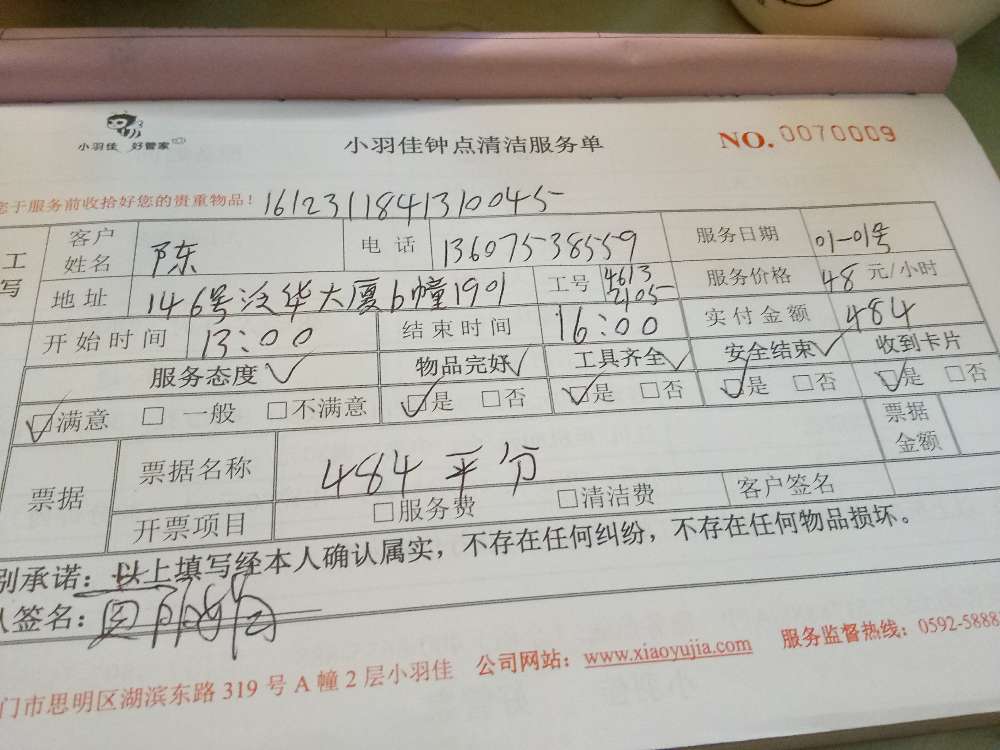 小羽佳 好管家
小羽佳钟点清洁服务单
NO. 0070009
您于服务前收拾好您的贵重物品！ 1612311841310045
工 客户姓名 陈 电话 13607538559 服务日期 01-01号
写 地址 146号泛华大厦b幢1901 工号 4613 2105 服务价格 48 元/小时
开始时间 13:00 结束时间 16:00 实付金额 484
服务态度 物品完好 工具齐全 安全结束 收到卡片
满意 一般 不满意 是 否 是 否 是 否 是 否
票据 票据名称 484平分 票据金额
开票项目 服务费 清洁费 客户签名
别承诺：以上填写经本人确认属实，不存在任何纠纷，不存在任何物品损坏。
人签名：
门市思明区湖滨东路 319 号 A 幢 2 层小羽佳 公司网站：www.xiaoyujia.com 服务监督热线：0592-5888